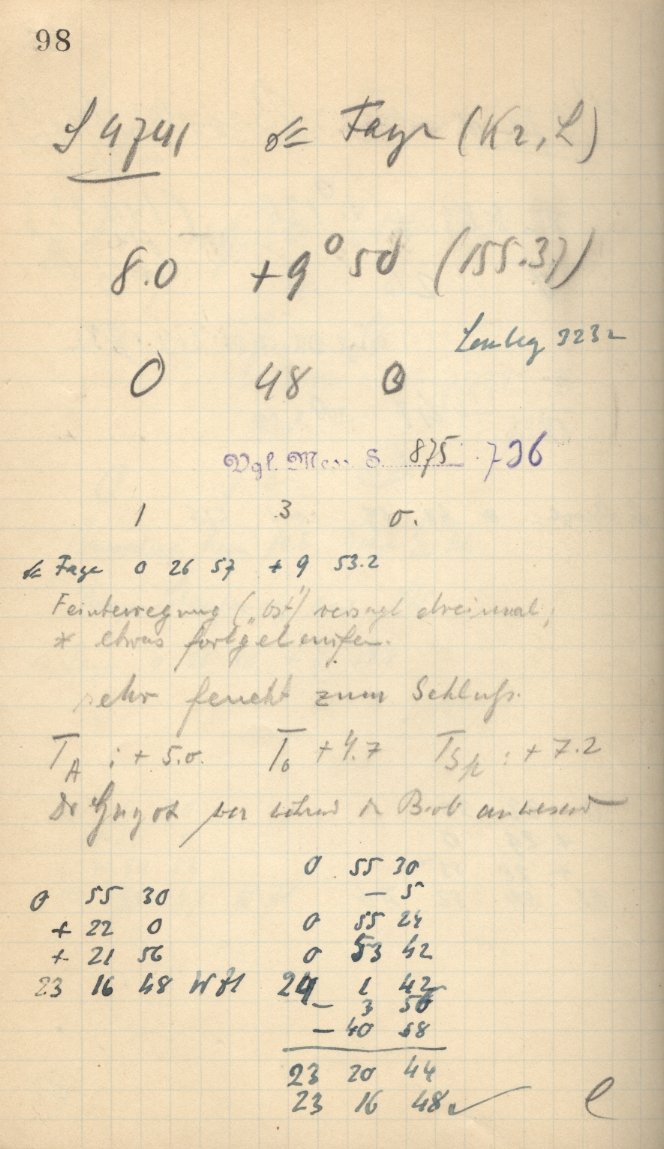 98
S 4741 Faye (Kr, L)
8.0 +9° 50 (155.37)
3232
0 48 0
Vgl. Mess. S. 875 736
1 3 0.
Faye 0 26 57 +9 53.2
Feinbewegung („Ost“) versagt dreimal;
* etwas fortgelaufen.
sehr feucht zum Schluß.
T_A : + 5.0. T_o + 4.7 T_Sp : + 7.2
Dr anwesend
0 55 30
0 55 30 − 5
+ 22 0 0 55 24
+ 21 56 0 53 42
23 16 48 24 1 42
− 3 56
− 40 58
23 20 44
23 16 48 ✓